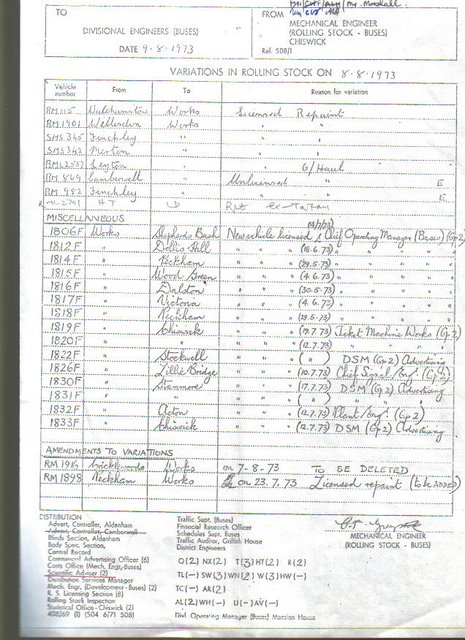 TO
DIVISIONAL ENGINEERS (BUSES)
DATE 9.8.1973
FROM
MECHANICAL ENGINEER
(ROLLING STOCK - BUSES)
CHISWICK
Ref. 508/1
Mr. Marshall
VARIATIONS IN ROLLING STOCK ON 8.8.1973
Vehicle number From To Reason for variation
RM 115 Walthamstow Works Licensed Repaint
RM 1901 Willesden Works " "
SMS 345 Finchley " " "
SMS 342 Merton " " "
Leyton " " O/Haul
RM 869 Camberwell " Unlicensed " E
RM 982 Finchley " " " E
2701 H7
MISCELLANEOUS
1806F Works Shepherds Bush New vehicle licensed Chief Operating Manager (Buses) (Gp 2)
1812F " Dollis Hill " " " (18.6.73) " " " " "
1814F " Peckham " " " (29.5.73) " " " " "
1815F " Wood Green " " " (4.6.73) " " " " "
1816F " Dalston " " " (30.5.73) " " " " "
1817F " Victoria " " " (4.6.73) " " " " "
1818F " Peckham " " " (29.5.73) " " " " "
1819F " Chiswick " " " (19.7.73) Ticket Machine Works (Gp 2)
1820F " " " " " (12.7.73) " " " "
1822F " Stockwell " " " ( " ) DSM (Gp 2) Advertising
1826F " Lillie Bridge " " " (10.7.73) Chief Signal Eng. (Gp 2)
1830F " Stanmore " " " (17.7.73) DSM (Gp 2) Advertising
1831F " " " " " ( " ) " " "
1832F " Acton " " " (12.7.73) Plant Eng. (Gp 2)
1833F " Chiswick " " " (12.7.73) DSM (Gp 2) Advertising
AMENDMENTS TO VARIATIONS
RM 1916 Cricklewood Works on 7-8-73 TO BE DELETED
RM 1898 Peckham Works on 23.7.73 Licensed repaint (to be ADDED)
DISTRIBUTION
Advert. Controller, Aldenham
Advert. Controller, Camberwell
Blinds Section, Aldenham
Body Spec. Section,
Central Record
Commercial Advertising Officer (6)
Costs Office (Mech. Engr. Buses)
Scientific Adviser (2)
Distribution Services Manager
Mech. Engr. (Development - Buses) (2)
R. S. Licensing Section (8)
Rolling Stock Inspection
Statistical Office - Chiswick (2)
408/69 (1) (504 6/71 508)
Traffic Supt. (Buses)
Financial Research Officer
Schedules Supt. Buses
Traffic Auditor, Griffith House
District Engineers
Q(2) NX(2) T(3) HT(2) R(2)
TL(-) SW(3) WN(2) W(3) HW(-)
TC(-) AR(2)
AL(2) WH(-) U(-) AV(-)
Divl. Operating Manager (Buses) Mansion House
MECHANICAL ENGINEER
(ROLLING STOCK - BUSES)